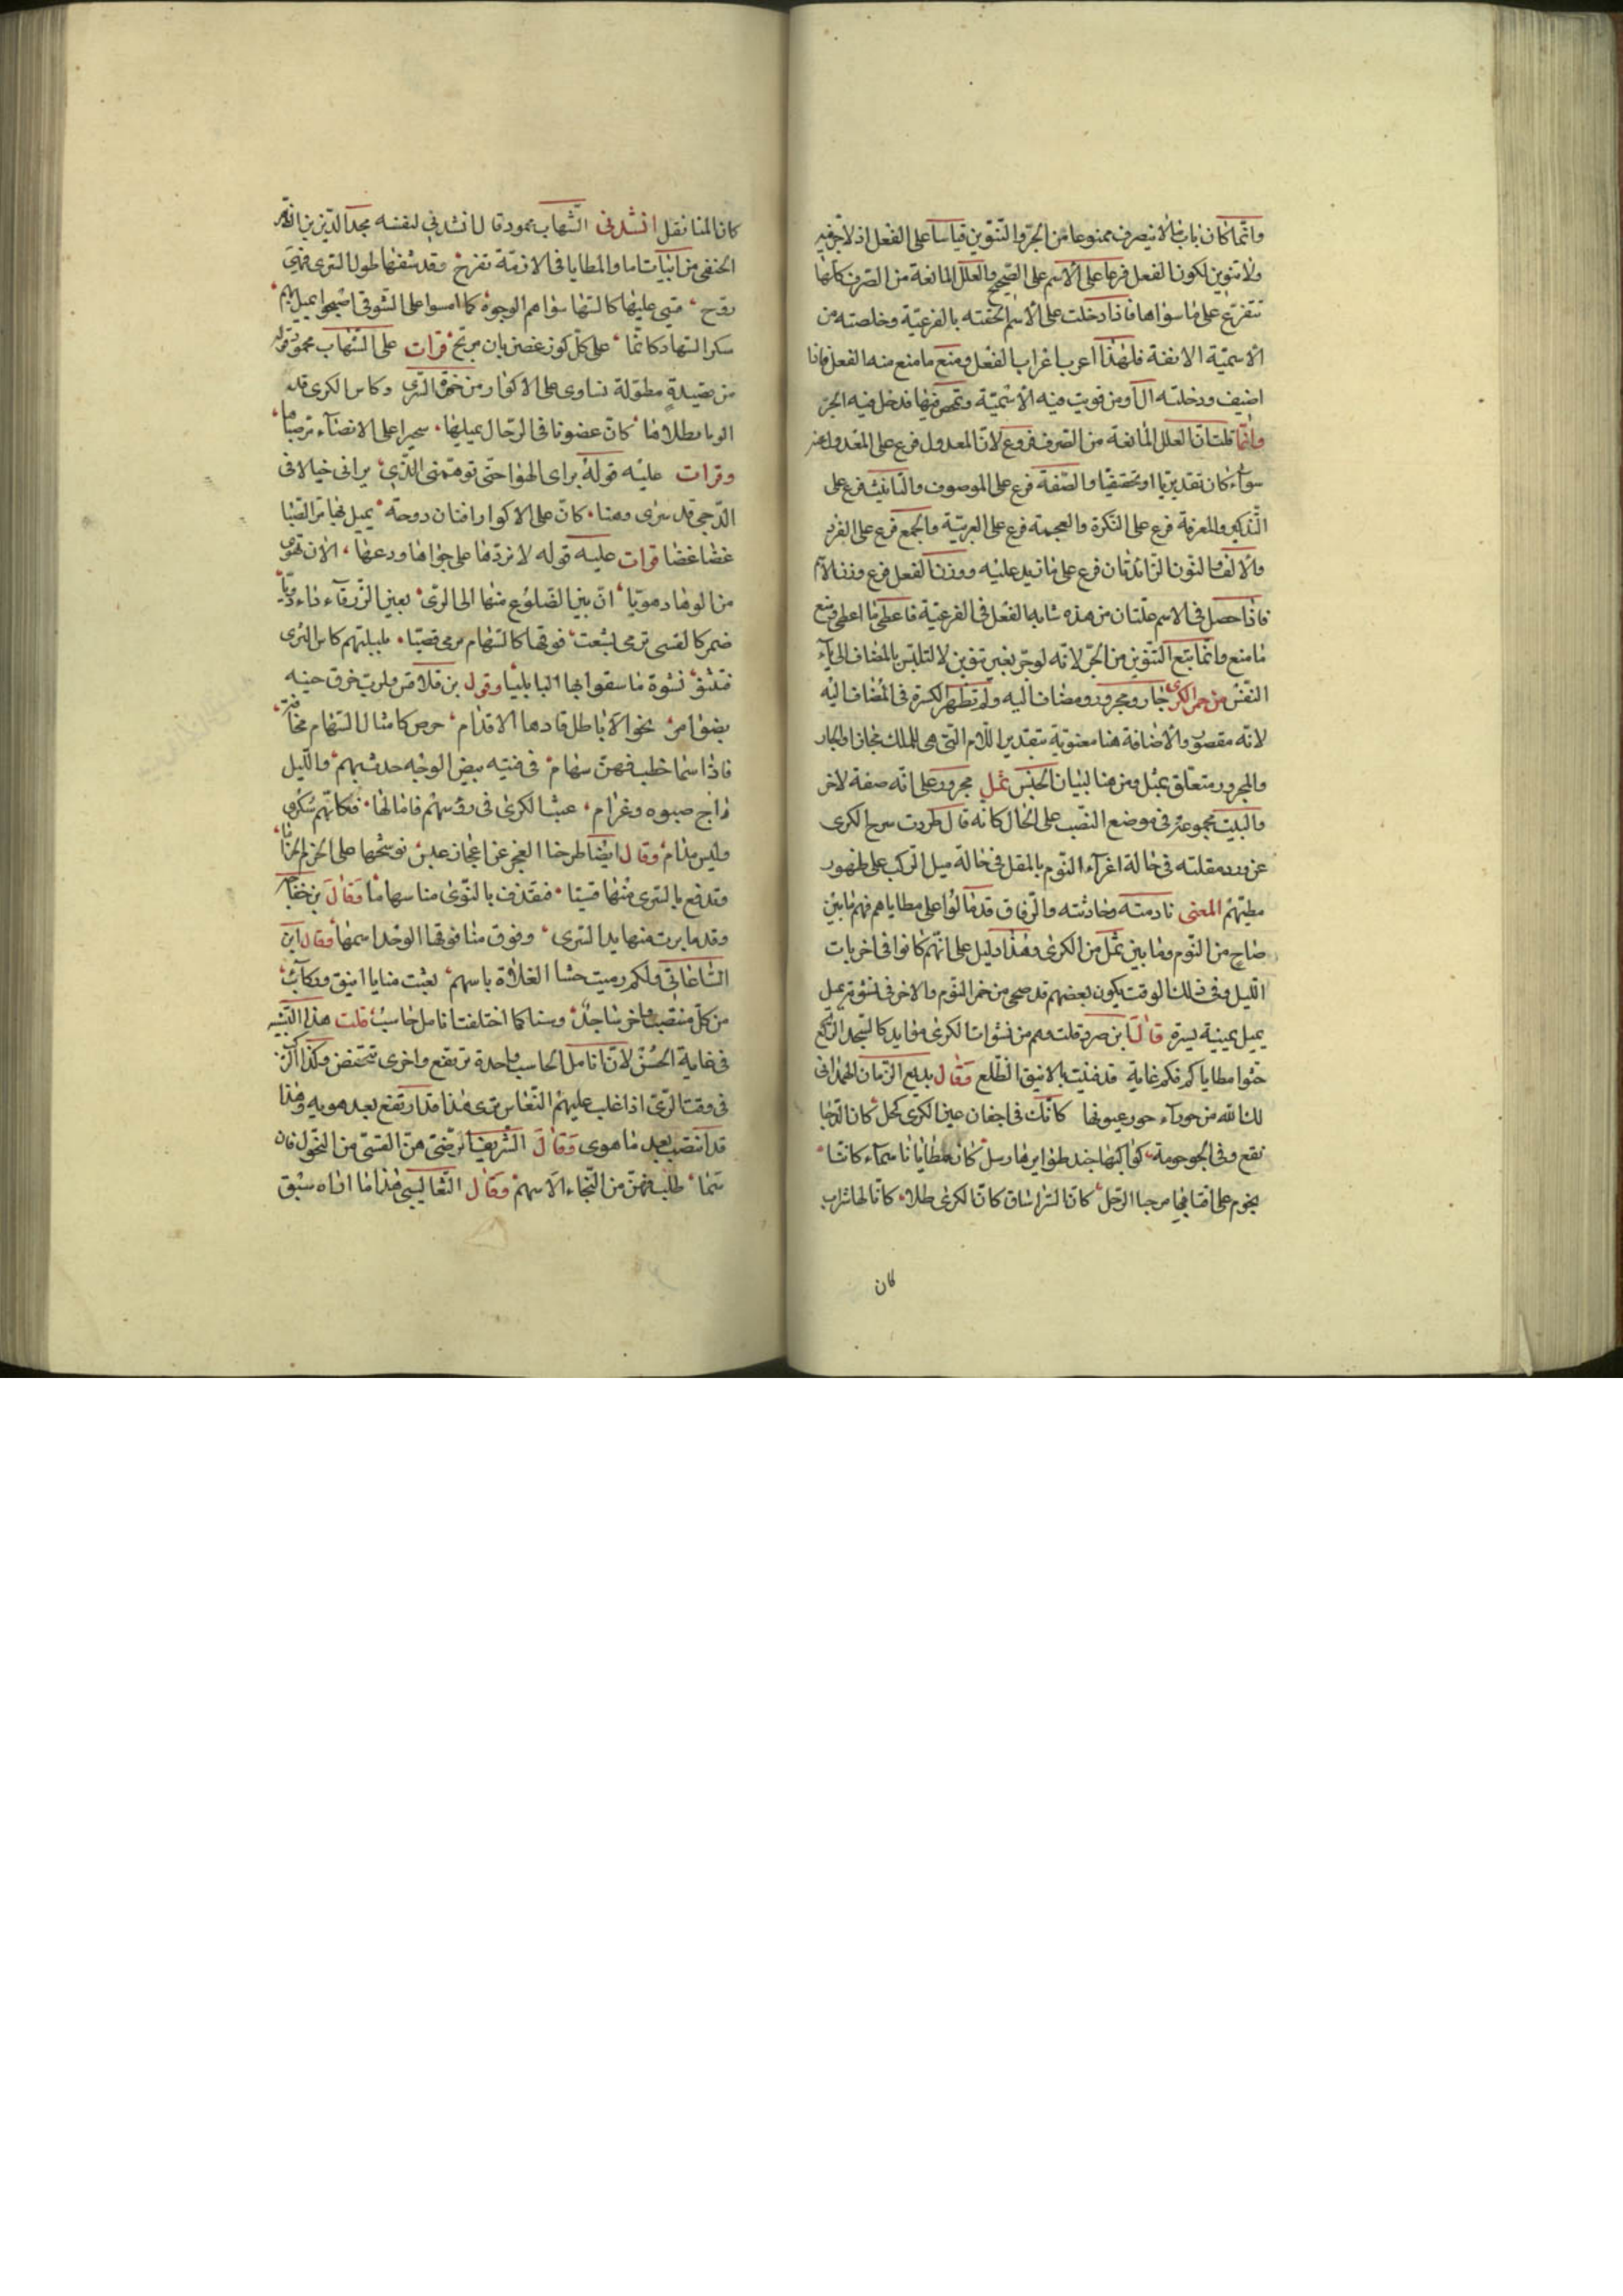 وانما كان باب ما لا ينصرف ممنوعا من الجر والتنوين قياسا على الفعل اذ لا جر فيه
ولا تنوين لكون الفعل فرعا على الاسم على الصحيح والعلل المانعة من الصرف كلها
تتفرع على ما سواها فاذا دخلت على الاسم الحقته بالفرعية وخلصته من
الاسمية الانفة فلهذا اعرب اعراب الفعل ومنع ما منع منه الفعل فاذا
اضيف ودخلته ال او من قويت فيه الاسمية وتمحض فيها فدخل فيه الجر
وانما قلت ان العلل المانعة من الصرف فروع لان المعدول فرع على المعدول عنه
سواء كان تقديريا او تحقيقيا والصفة فرع على الموصوف والتانيث فرع على
التذكير والمعرفة فرع على النكرة والعجمة فرع على العربية والجمع فرع على الفرد
والالف والنون الزائدتان فرع على ما زيد عليه ووزن الفعل فرع وزن الاسم
فاذا حصل فى الاسم علتان من هذه شابه الفعل فى الفرعية فاعطى ما اعطى ومنع
ما منع وانما يتبع التنوين من الجر لانه لو جر بغير تنوين لالتبس بالمضاف الى ياء
النفس من خمر الكرى جار ومجرور ومضاف اليه ولم تظهر الكسرة فى المضاف اليه
لانه مقصور والاضافة هنا معنوية بتقدير اللام التى هى للملك مجازا والجار
والمجرور متعلق بثمل ومن هنا لبيان الجنس ثمل مجرور على انه صفة لاخر
والبيت مجموعه فى موضع النصب على الحال كانه قال طردت سرح الكرى
عن ورد مقلته فى حالة اغراء النوم بالمقل فى حالة ميل الركب على ظهور
مطيتهم المعنى نادمته وحادثته والرفاق قد مالوا على مطاياهم فهم ما بين
صاح من النوم وما بين ثمل من الكرى وهذا دليل على انهم كانوا فى اخريات
الليل وفى ذلك الوقت يكون بعضهم قد صحى من خمر النوم والاخر فى نشوته ثمل
يميل يمينية يسرة قال ابن صردر قلت وهم من نشوات الكرى موايد كالسجد الركع
حثوا مطاياكم فكم غاية قد فنيت بالانيق الظلع وقال بديع الزمان الهمدانى
لك الله من حوراء حور عيونها كانك فى اجفان عين الكرى كحل كان الدجا
نقع وفى الجو حومة كواكبها جند طوايرها رسل كان مطايانا سماء كاننا
نجوم على اقتابها برجها الرحل كان السرا ساق كان الكرى طلا كانا لها شراب
كان
كان المنا نقل انشدنى الشهاب محمود قال انشدنى لنفسه مجد الدين بن الظهير
الحنفى من ابيات اما والمطايا فى الازمة تفرخ وقد شفها طول السرى فهى
روح فتى عليها كالسها سواهم الوجوه كما امسوا على الشوق اصبحوا يميل بهم
سكر السهاد كانما على كل كور غصن بان مرنح قرات على الشهاب محمود قوله
من قصيدة مطولة نساوى على الاكوار من خمرة السرى وكاس الكرى قد
 كان غصونا فى الرحال يميلها سحيرا على الانضاء ترصبا
وقرات عليه قوله برانى الهوا حتى توهمنى الذى يرانى خيالا فى
الدجى قد سرى وهنا كان على الاكوار افنان دوحة يميل بها مر الصبا
غصنا غصنا قرات عليه قوله لا تردها على جواها ودعها الان تهوى
من الوهاد هويا ان بين الضلوع منها الى الرى بعين الزرقاء داء دويا
ضمر كالقسى ترمى بشعث فوقها كالسهام ترمى قصيا
 وقول بن قلاقس
بضوامر نحو الاباطل قادها الاقدام حرص كامثال السهام
فاذا سما خطب فهن سهام فى فتية بيض الوجوه حدث بهم والليل
داج صبوة وغرام عبث الكرى فى روسهم فامالها فكانهم سكرى
وليس مدام وقال ايضا طرحنا العجز عن اعجاز عيس نوشحها على الحزم الحزاما
وندفع بالسرى منها قسيا فنقذف بالنوى منا سهاما وقال بن خفاجه
وقد ما برت منها يد السرى وفوق منا فوقها الوخد اسهما وقال ابن
الساعاتى ولكم رميت حشا الفلاة باسهم بعثت منايا اينق وركائب
من كل منتصب واخر ساجد وسنا كما اختلفت انامل حاسب قلت هذا التشبيه
فى غاية الحسن لان انامل الحاسب واحدة ترتفع واخرى تنخفض وكذا الركب
فى وقت السرى اذا غلب عليهم النعاس ترى هذا قد ارتفع بعد هويه وهذا
قد انتصب بعد ما هوى وقال الشريف الرضى هن القسى من النحول فان
سما طلب فهن من النجاء الاسهم وقال